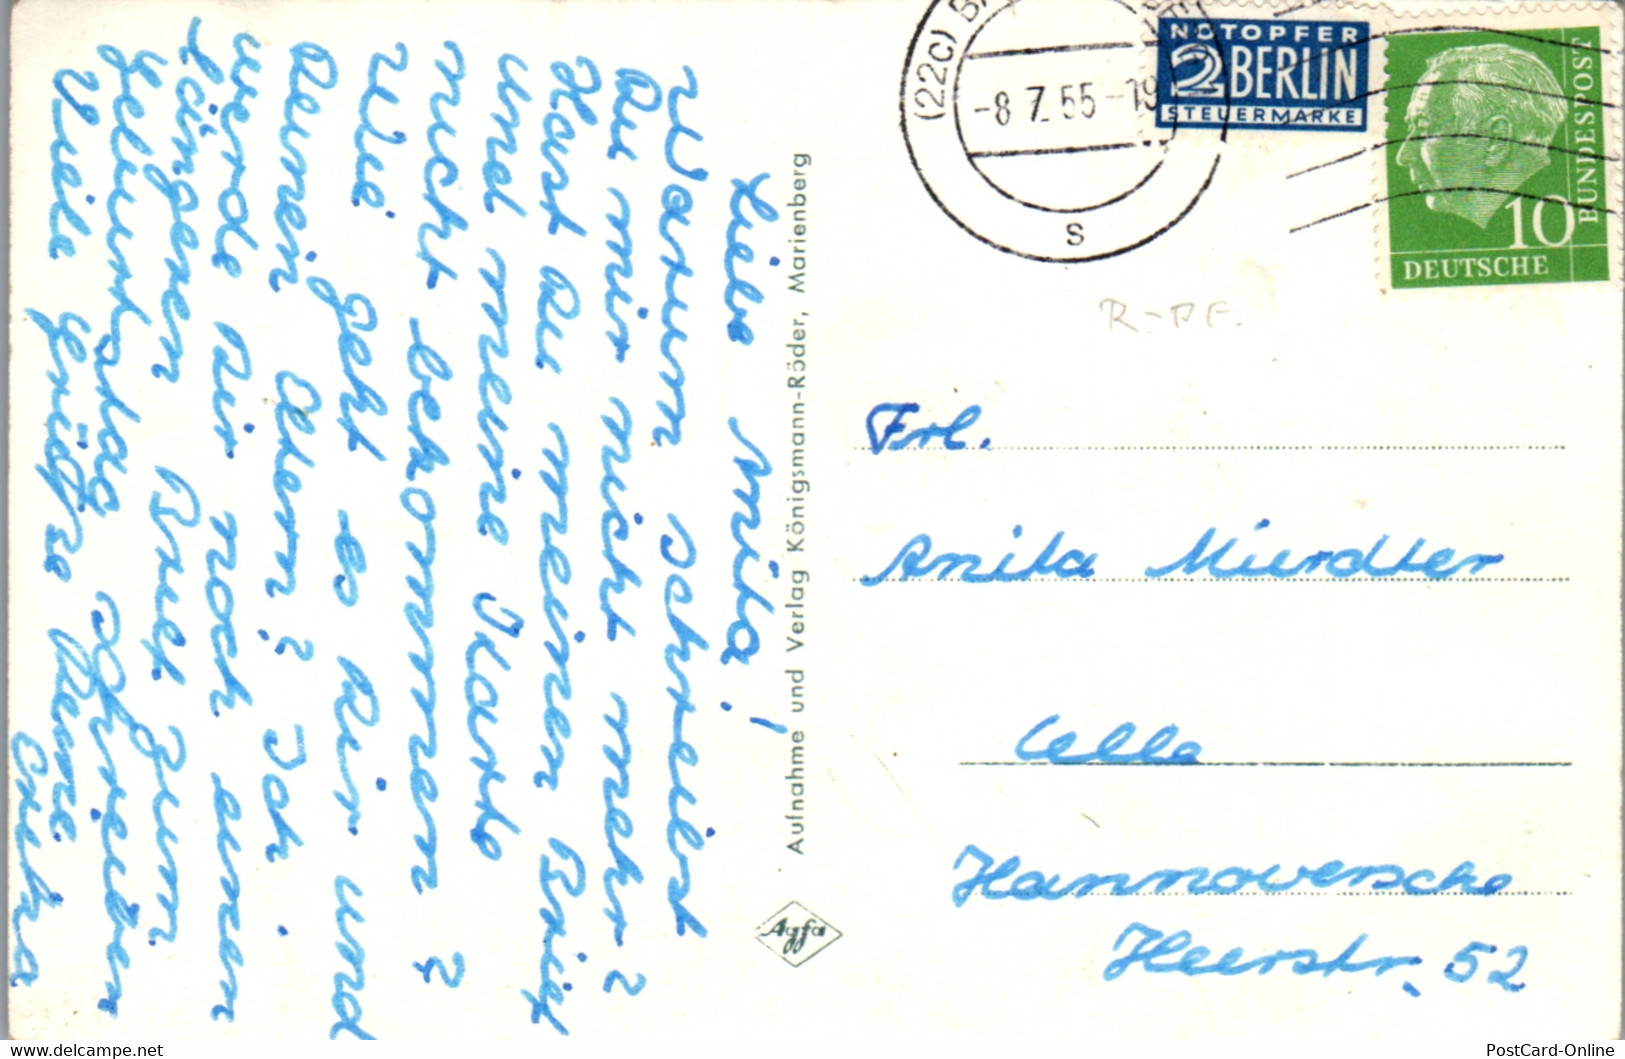 Liebe Anita!
Warum schreibst
Du mir nicht mehr?
Hast Du meinen Brief
und meine Karte
nicht bekommen?
Wie geht es Dir und
Deinen Eltern? Ich
werde Dir noch einen
längeren Brief zum
Geburtstag schreiben
Viele Grüße Deine
Erika
Aufnahme und Verlag Königsmann-Röder, Marienberg
Agfa
(22c)
-8 7. 55-19
s
NOTOPFER
2 BERLIN
STEUERMARKE
10
DEUTSCHE
BUNDESPOST
R-PF.
Frl.
Anita Mierdter
Celle
Hannoversche
Heerstr. 52
www.delcampe.net
PostCard-Online